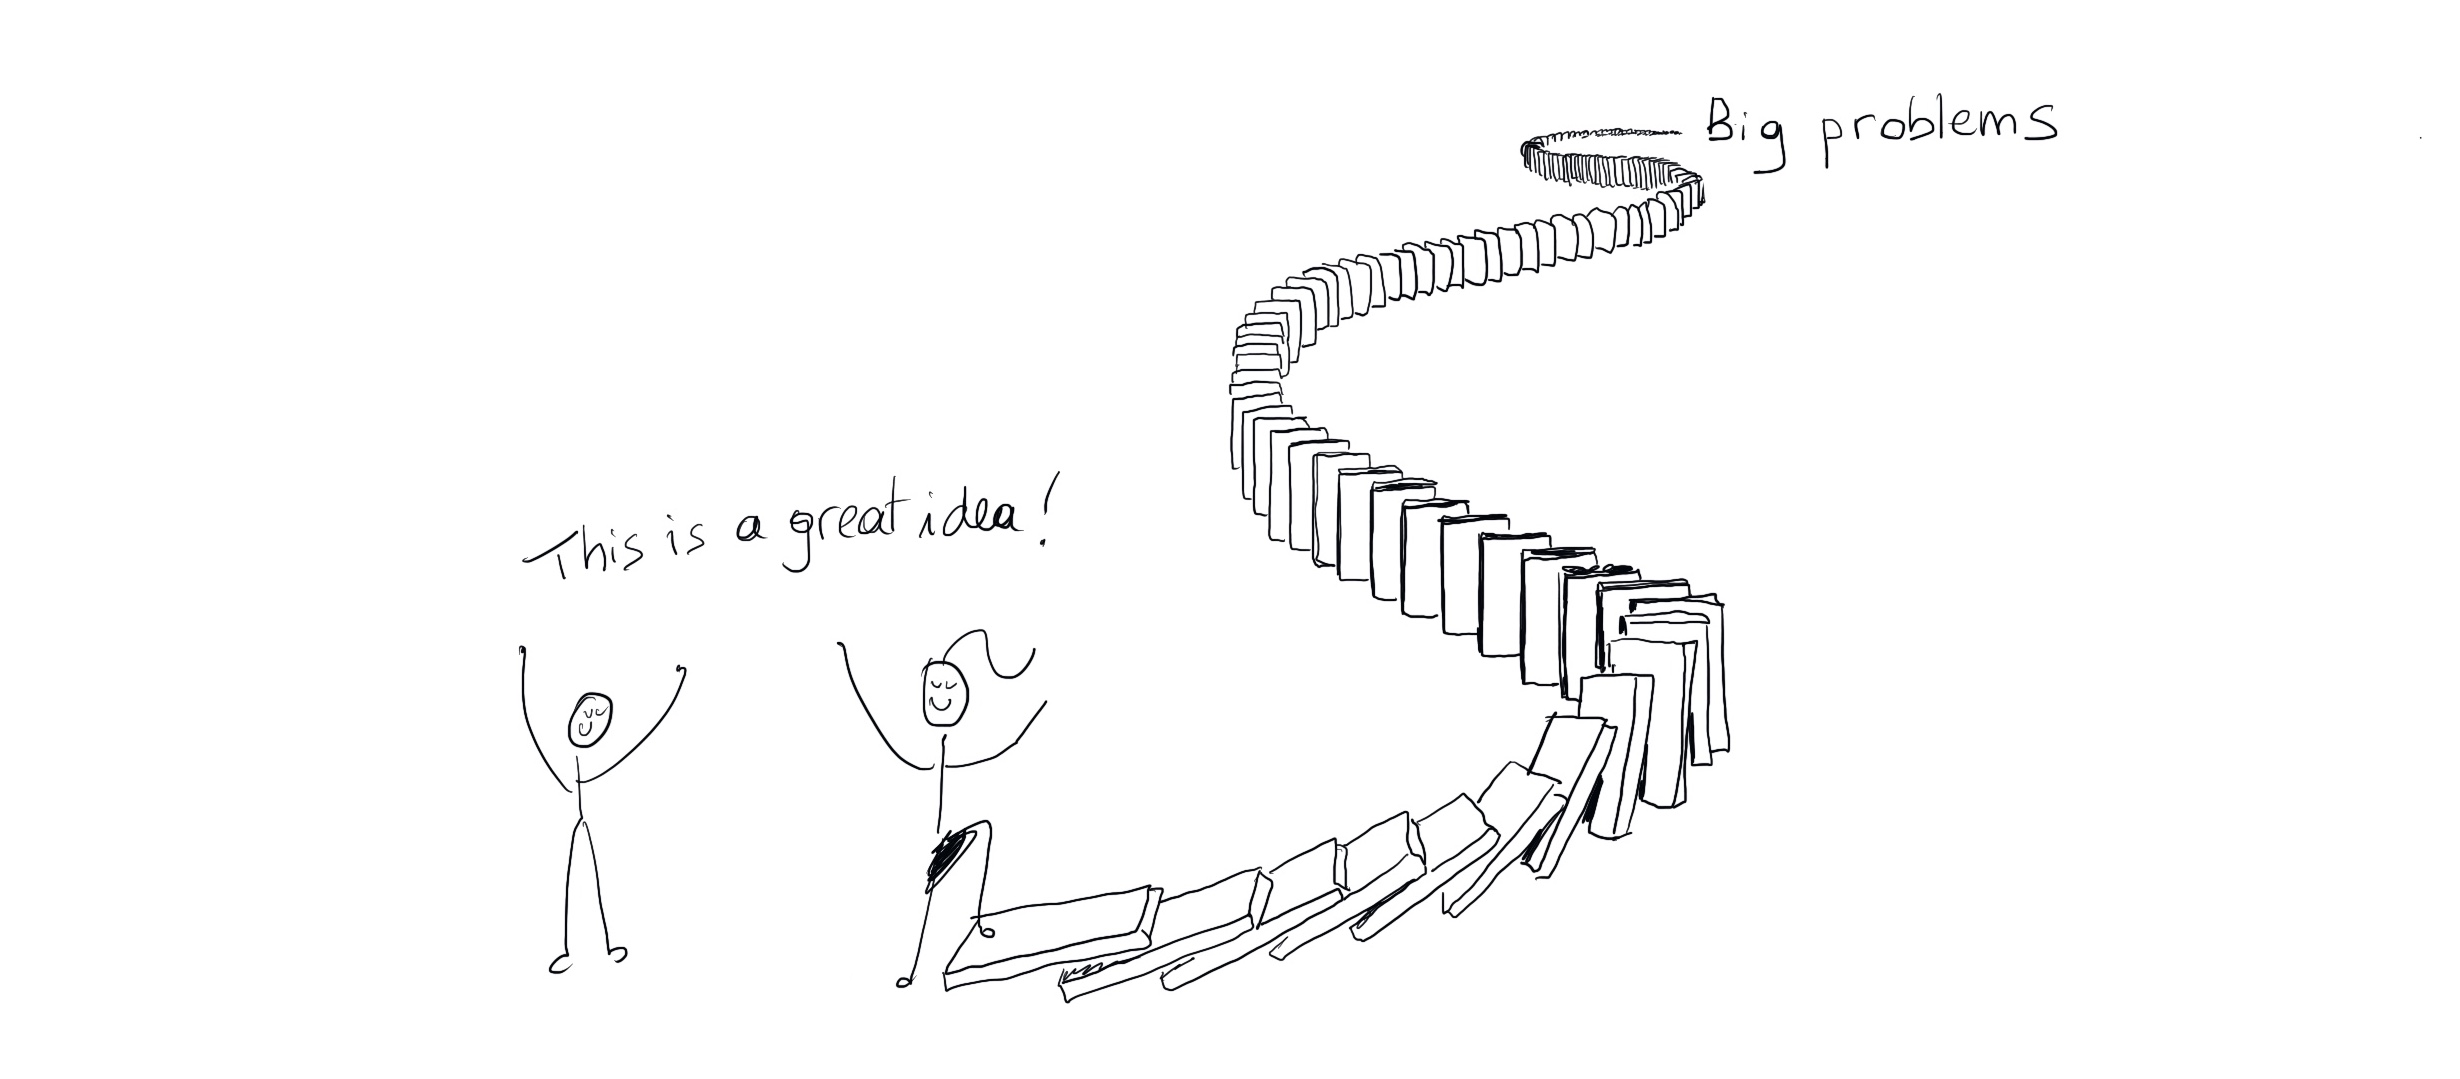 Big problems
This is a great idea!